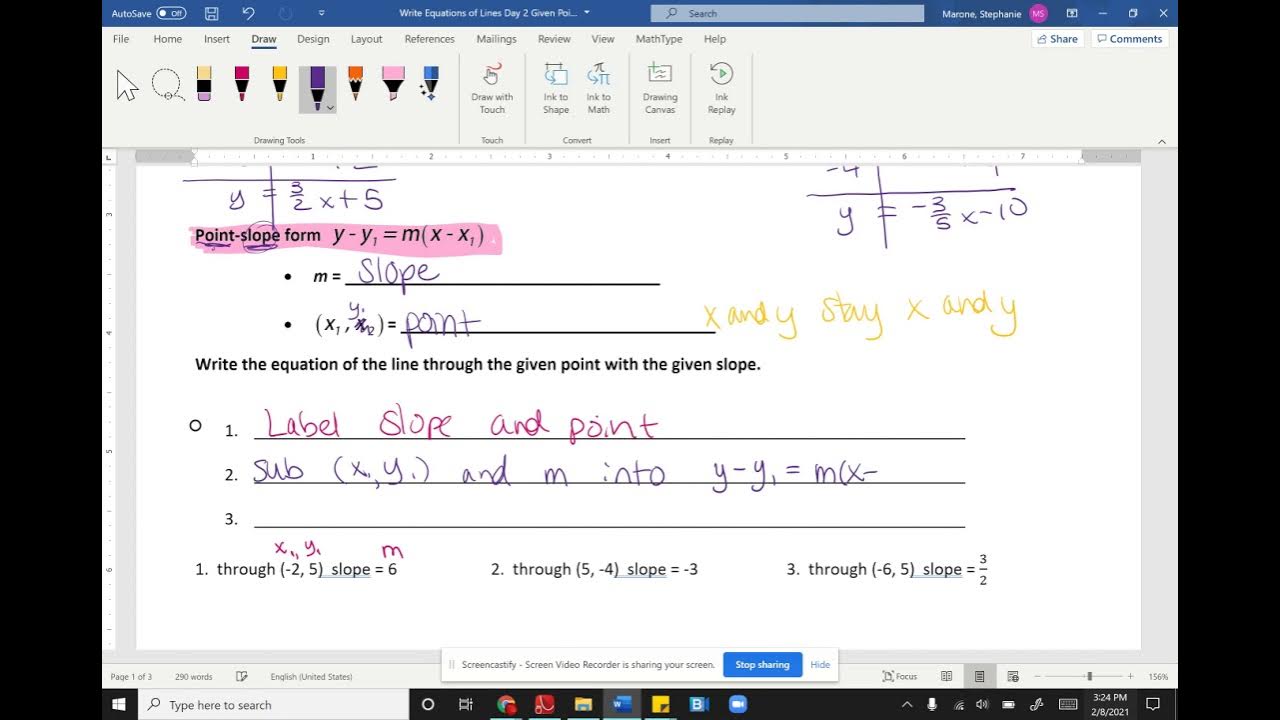 AutoSave Off
Write Equations of Lines Day 2 Given Poi...
Search
Marone, Stephanie MS
File Home Insert Draw Design Layout References Mailings Review View MathType Help
Share Comments
Draw with Touch
Ink to Shape
Ink to Math
Drawing Canvas
Ink Replay
Drawing Tools Touch Convert Insert Replay
1 2 3 4 5 6 7
y = 3/2 x + 5
-4
y = -3/5 x - 10
Point-slope form y - y₁ = m(x - x₁)
• m = Slope
• (x₁, y₁) = point
x and y stay x and y
Write the equation of the line through the given point with the given slope.
1. Label Slope and point
2. Sub (x₁, y₁) and m into y - y₁ = m(x -
3.
x₁, y₁ m
1. through (-2, 5) slope = 6
2. through (5, -4) slope = -3
3. through (-6, 5) slope = 3/2
Screencastify - Screen Video Recorder is sharing your screen. Stop sharing Hide
Page 1 of 3 290 words English (United States) Focus 156%
Type here to search
3:24 PM
2/8/2021